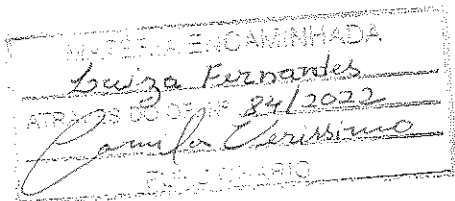 MATÉRIA ENCAMINHADA
Luiza Fernandes
ATRAVÉS DO OF. Nº 84/2022
Camila Verissimo
FUNCIONÁRIO